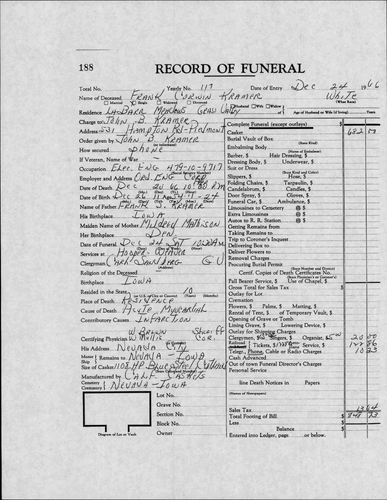 188
RECORD OF FUNERAL
Total No. Yearly No. 117 Date of Entry Dec 24 1966
Name of Deceased Frank Corwin Kramer White
Married Single Widowed Divorced Husband Wife Widow (What Race)
Residence LaBarr Meadows Grass Valley Age of Husband or Wife (if living) Years
Charge to John B. Kramer
Address 231 Hampton Rd-Piedmont
Order given by John B. Kramer
How secured Phone
If Veteran, Name of War
Occupation Elec. Eng
Employer and Address
Date of Death Dec 20 66 10:30 PM
Date of Birth Dec
Name of Father Frank J. Kramer
His Birthplace Iowa
Maiden Name of Mother Mildred Mathisen
Her Birthplace Den.
Date of Funeral Dec 24 Sat 10:30 AM
Services at Hooper-Weaver
Clergyman G V
Religion of the Deceased
Birthplace Iowa
Resided in the State 10
Place of Death Residence
Cause of Death Acute Myocardial
Contributory Causes Infarction
Certifying Physician W Brown Sheriff Cor.
His Address Nevada City
Remains to Nevada - Iowa
Size of
Manufactured by Calif Caskets
Cemetery Nevada - Iowa
Lot No.
Grave No.
Section No.
Block No.
Owner
Diagram of Lot or Vault
Complete Funeral (except outlays) $
Casket
Burial Vault of Box
(State Kind)
Embalming Body
(Name of Embalmer)
Barber, $ Hair Dressing, $
Dressing Body, $ Underwear, $
Suit or Dress
(State Kind and Color)
Slippers, $ Hose, $
Folding Chairs, $ Torpedho, $
Candelabrum, $ Candles, $
Door Spray, $ Gloves, $
Funeral Car, $ Ambulance, $
Limousines to Cemetery @ $
Extra Limousines @ $
Autos to R. R. Station @ $
Getting Remains from
Taking Remains to
Trip to Coroner's Inquest
Delivering Box to
Deliver Flowers to
Removal Charges
Procuring Burial Permit
Certif. Copies of Death Certificates No.
Pall Bearer Service, $ Use of Chapel, $
Gross Total for Sales Tax $
Outlay for Lot
Cremation
Flowers, $ Palms, $ Matting, $
Rental of Tent, $ of Temporary Vault, $
Opening of Grave or Tomb
Lining Grave, $ Lowering Device, $
Outlay for Shipping Charges
Clergyman, $ Singers, $ Organist, $ 20 00
Tickets, $ Service, $
Teleg., Phone, Cable or Radio Charges
Cash Advanced
Out of town Funeral Director's Charges
Personal Service
line Death Notices in Papers
(Names of Newspapers)
Sales Tax
Total Footing of Bill $
Less
Balance $
Entered into Ledger, page or below.